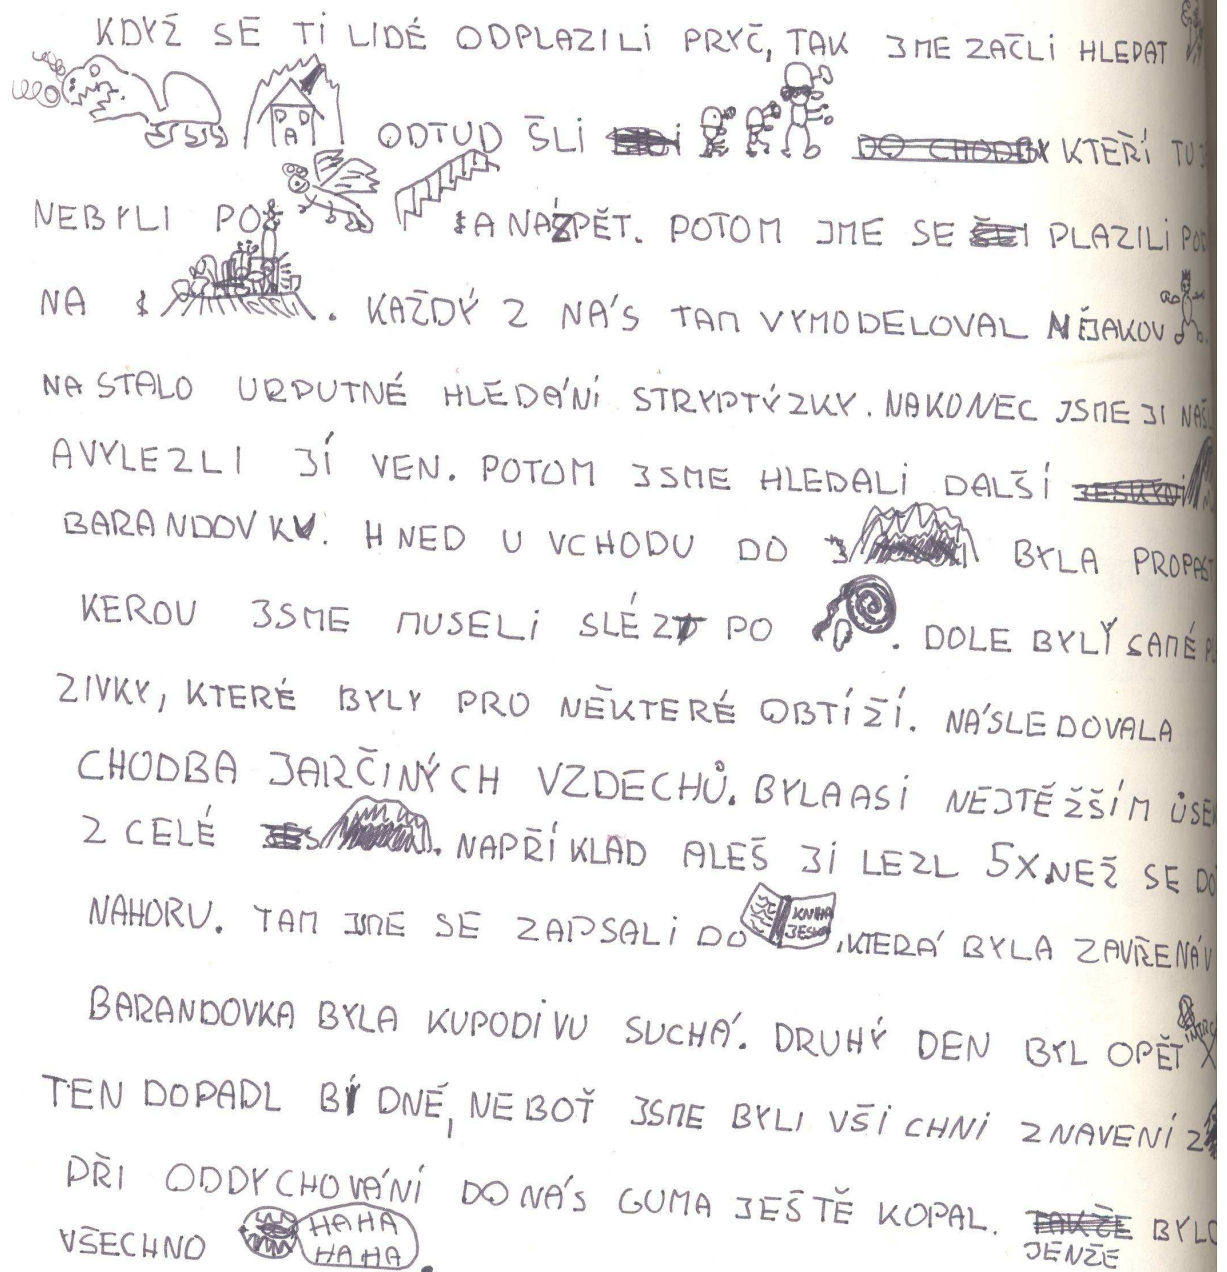 KDYŽ SE TI LIDÉ ODPLAZILI PRYČ, TAK JME ZAČLI HLEDAT
ODTUD ŠLI DO CHODBY KTEŘÍ TU
NEBYLI PO A NAZPĚT. POTOM JME SE ŠLI PLAZILI
NA . KAŽDÝ Z NÁS TAM VYMODELOVAL NĚJAKOU
NASTALO URPUTNÉ HLEDÁNÍ STRYPTÝZKY. NAKONEC JSME JI NAŠL
A VYLEZLI JÍ VEN. POTOM JSME HLEDALI DALŠÍ JESKYNI
BARANDOVKU. HNED U VCHODU DO BYLA PROPAST
KEROU JSME MUSELI SLÉZT PO . DOLE BYLÝ SAMÉ PL
ZIVKY, KTERÉ BYLY PRO NĚKTERÉ OBTÍŽÍ. NÁSLEDOVALA
CHODBA JARČINÝCH VZDECHŮ. BYLA ASI NEJTĚŽŠÍM ÚSE
Z CELÉ JES . NAPŘÍKLAD ALEŠ JI LEZL 5X. NEŽ SE DO
NAHORU. TAM JME SE ZAPSALI DO KNIHA JESKY , KTERÁ BYLA ZAVŘENÁ V
BARANDOVKA BYLA KUPODIVU SUCHÁ. DRUHÝ DEN BYL OPĚT
TEN DOPADL BÝDNĚ, NEBOŤ JSME BYLI VŠICHNI ZNAVENÍ Z
PŘI ODDYCHOVÁNÍ DO NÁS GUMA JEŠTĚ KOPAL. TAKŽE JENŽE BYLO
VŠECHNO HAHA HAHA .